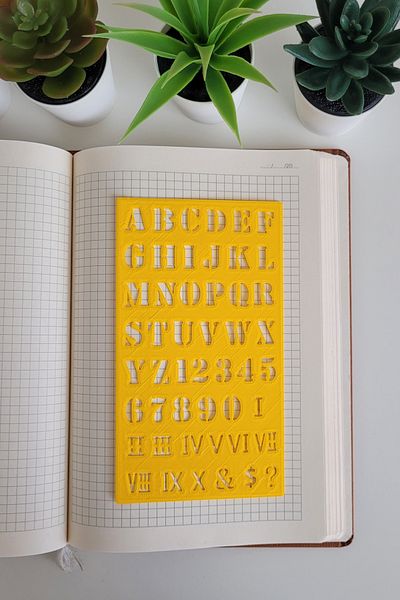 ABCDEF
GHIJKL
MNOPQR
STUVWX
YZ12345
67890 I
II III IV V VI VII
VIII IX X & $ ?